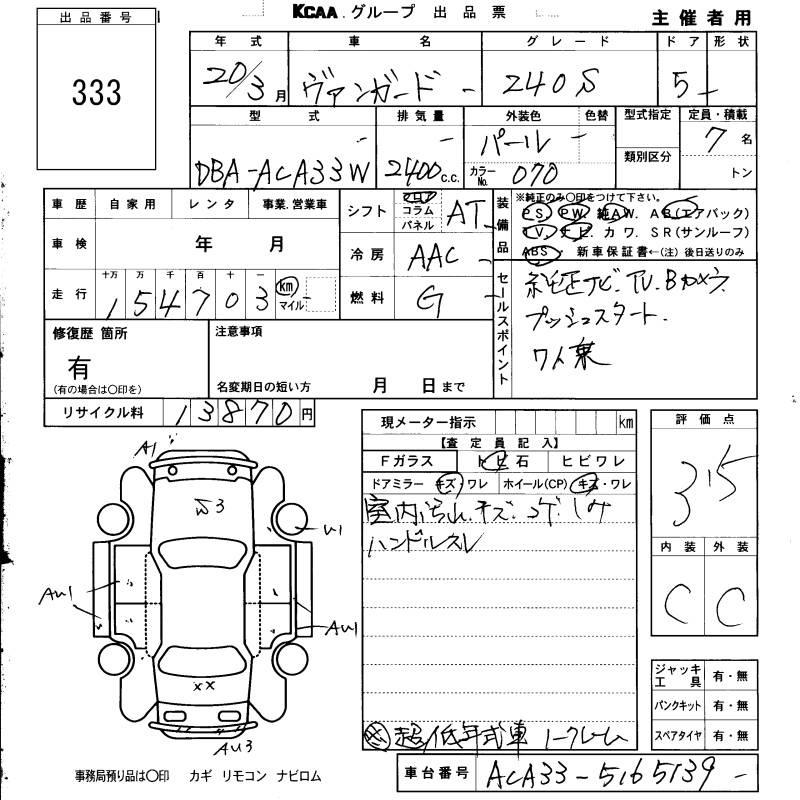 KCAA.グループ 出品票
主催者用
出品番号
333
年式 車名 グレード ドア 形状
20/3月 ヴァンガード - 240S 5 -
型式 排気量 外装色 色替 型式指定 定員・積載
DBA-ACA33W 2400c.c. パール - 7名
カラーNo. 070 類別区分 トン
車歴 自家用 レンタ 事業.営業車
シフト フロア コラム パネル AT
装備品 ※純正のみ○印をつけて下さい。
PS PW 純AW. AB(エアバック)
TV. ナビ カワ. SR(サンルーフ)
ABS 新車保証書←(注)後日送りのみ
車検 年 月
冷房 AAC
走行 十万 万 千 百 十 一
154703 km マイル
燃料 G
セールスポイント 純正ナビ.TV.Bカメラ
プッシュスタート.
7人乗
修復歴 箇所
有
(有の場合は○印を)
注意事項
名変期日の短い方 月 日まで
リサイクル料 13870円
現メーター指示 km
【査定員記入】
Fガラス 飛石 ヒビワレ
ドアミラー キズ ワレ ホイール(CP) キズ・ワレ
室内汚れ.キズ.コゲ.シミ
ハンドルスレ
評価点
3.5
内装 外装
C C
A1
W3
U1
AU1
AU1
XX
AU3
ジャッキ工具 有・無
パンクキット 有・無
スペアタイヤ 有・無
超低年式車 ノークレーム
事務局預り品は○印 カギ リモコン ナビロム
車台番号 ACA33-5165139 -